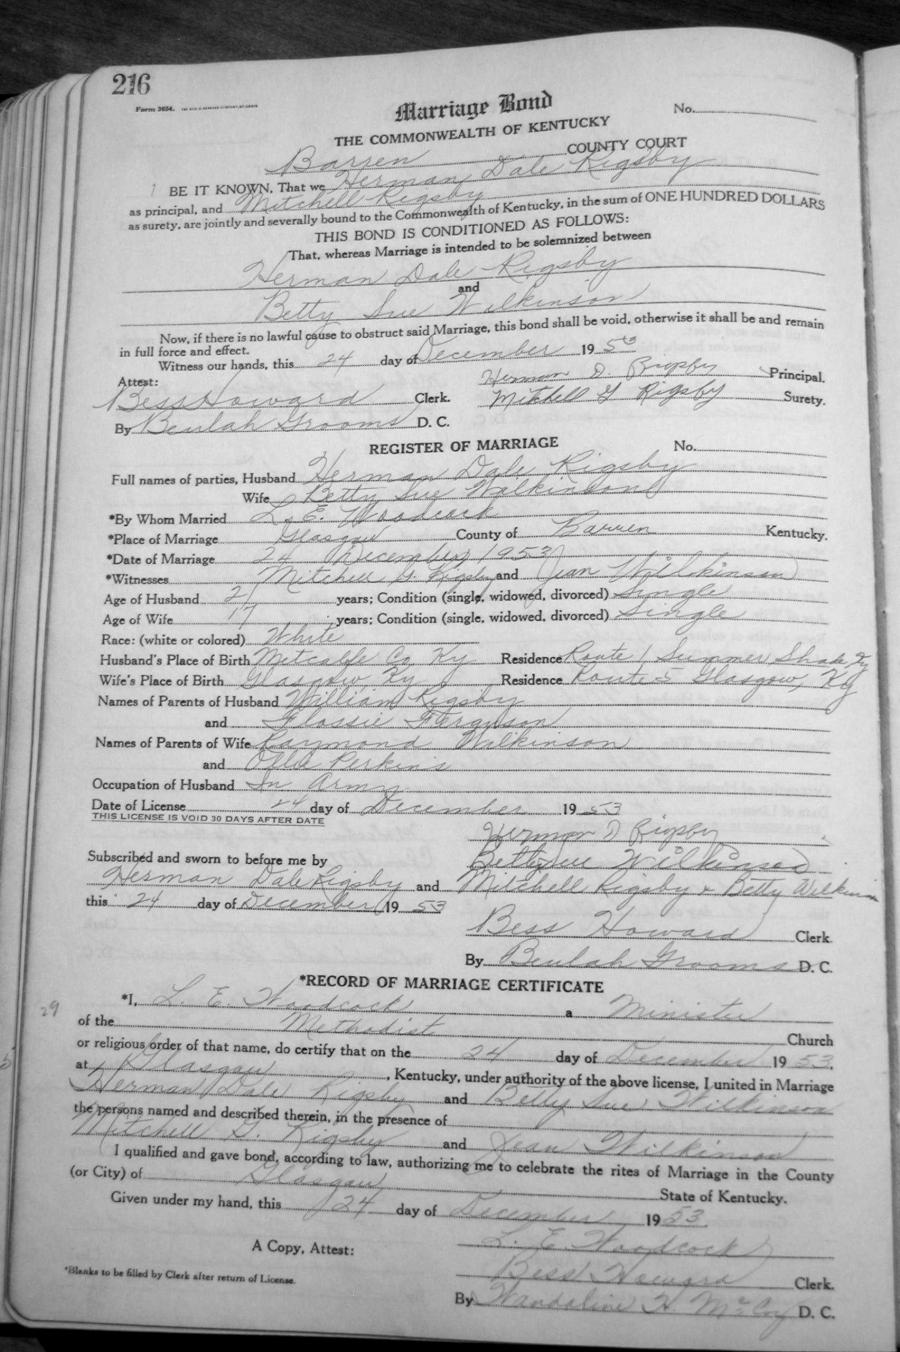 216
Form 3604.
Marriage Bond
No.
THE COMMONWEALTH OF KENTUCKY
Barren COUNTY COURT
BE IT KNOWN, That we Herman Dale Rigsby
as principal, and Mitchell Rigsby
as surety, are jointly and severally bound to the Commonwealth of Kentucky, in the sum of ONE HUNDRED DOLLARS
THIS BOND IS CONDITIONED AS FOLLOWS:
That, whereas Marriage is intended to be solemnized between
Herman Dale Rigsby
and
Betty Sue Wilkinson
Now, if there is no lawful cause to obstruct said Marriage, this bond shall be void, otherwise it shall be and remain
in full force and effect.
Witness our hands, this 24 day of December 19 53
Attest: Herman D. Rigsby Principal.
Bess Howard Clerk. Mitchell G Rigsby Surety.
By Beulah Grooms D. C.
REGISTER OF MARRIAGE No.
Full names of parties, Husband Herman Dale Rigsby
Wife Betty Sue Wilkinson
*By Whom Married L. E. Woodcock
*Place of Marriage Glasgow County of Barren Kentucky.
*Date of Marriage 24 December, 1953
*Witnesses Mitchell G. Rigsby and Jean Wilkinson
Age of Husband 21 years; Condition (single, widowed, divorced) Single
Age of Wife 17 years; Condition (single, widowed, divorced) Single
Race: (white or colored) White
Husband's Place of Birth Metcalfe Co Ky Residence Route 1 Summer Shade Ky
Wife's Place of Birth Glasgow, Ky Residence Route 5 Glasgow, Ky
Names of Parents of Husband William Rigsby
and Flossie Ferguson
Names of Parents of Wife Raymond Wilkinson
and Perkins
Occupation of Husband In Army
Date of License 24 day of December 19 53
THIS LICENSE IS VOID 30 DAYS AFTER DATE
Herman D Rigsby
Subscribed and sworn to before me by Betty Sue Wilkinson
Herman Dale Rigsby and Mitchell Rigsby & Betty Wilkinson
this 24 day of December 19 53
Bess Howard Clerk
By Beulah Grooms D. C.
*RECORD OF MARRIAGE CERTIFICATE
29
*I, L. E. Woodcock a Minister
of the Methodist Church
or religious order of that name, do certify that on the 24 day of December 19 53,
at Glasgow, Kentucky, under authority of the above license, I united in Marriage
Herman Dale Rigsby and Betty Sue Wilkinson
the persons named and described therein, in the presence of
Mitchell G. Rigsby and Jean Wilkinson
I qualified and gave bond, according to law, authorizing me to celebrate the rites of Marriage in the County
(or City) of Glasgow State of Kentucky.
Given under my hand, this 24 day of December 19 53.
L. E. Woodcock
A Copy, Attest:
Bess Howard Clerk.
*Blanks to be filled by Clerk after return of License.
By Wandaline H. McCoy D. C.